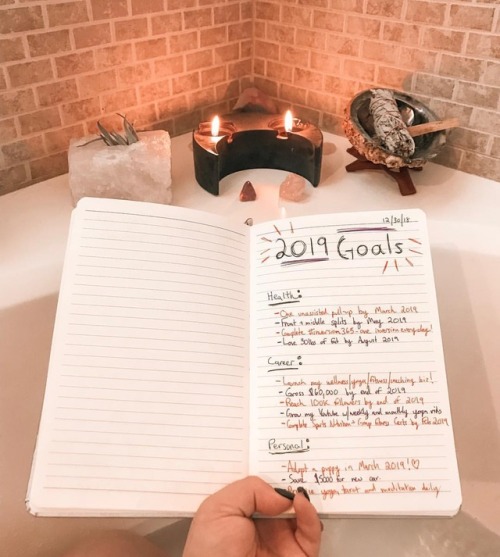 12/30/18
2019 Goals
Health:
- One unassisted pull-up by March 2019
- Front & middle splits by May 2019
- Complete 365 - one inversion everyday!
- Lose 30lbs of fat by August 2019
Career:
- Launch my wellness/yoga/fitness/ biz!
- Gross $60,000 by end of 2019
- Reach 100K followers by end of 2019
- Grow my Youtube w/weekly and monthly yoga vids
- Complete Sports Nutrition + Group Fitness Certs by Feb 2019
Personal:
- Adopt a puppy in March 2019! ♡
- Save $5000 for new car
- yoga, tarot and meditation daily